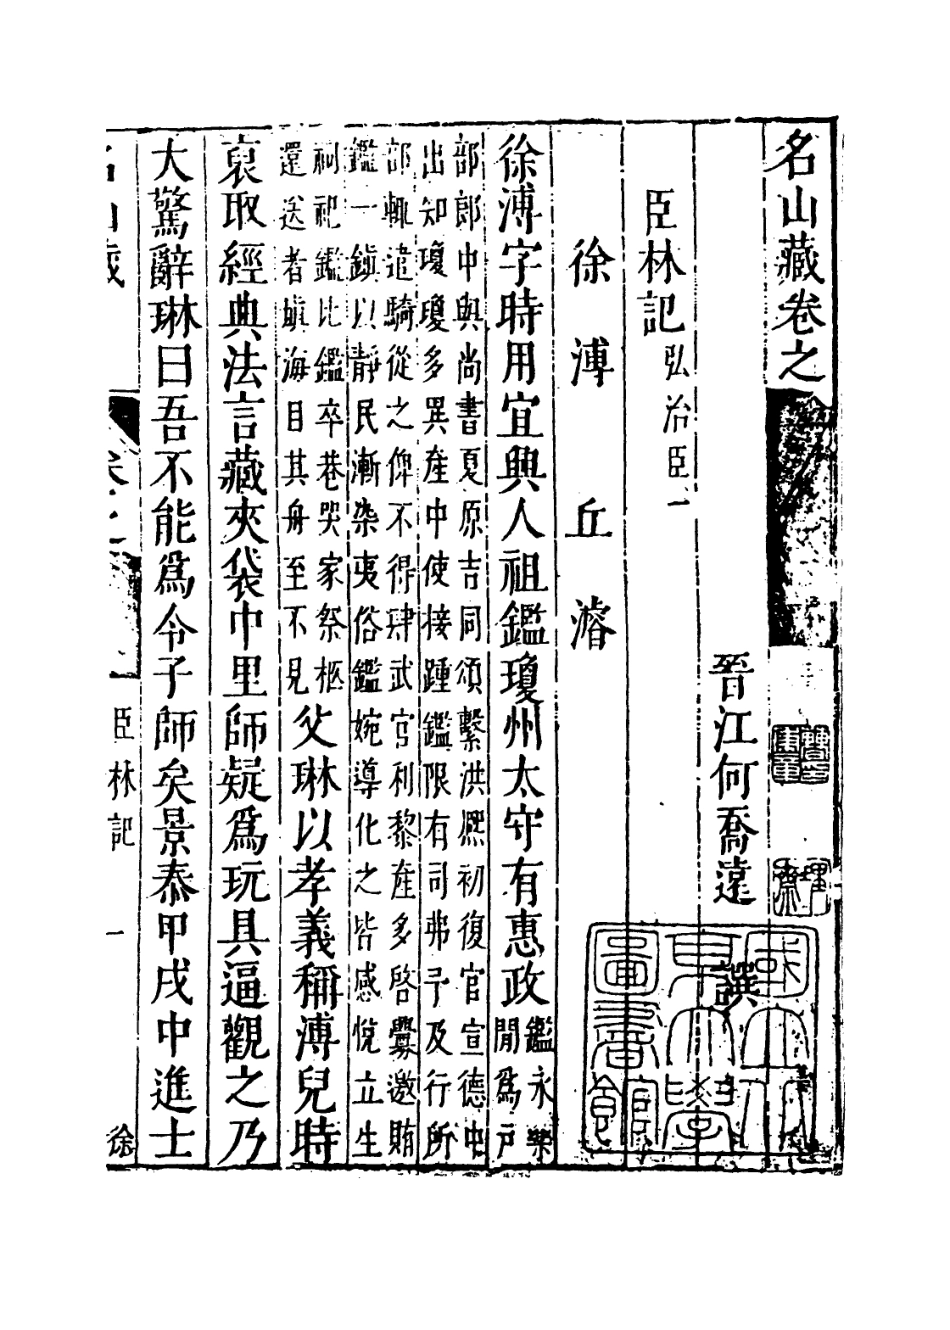 名山藏卷之
晉江何喬遠譔
臣林記 弘治臣一
徐溥 丘濬
徐溥字時用宜興人祖鑑瓊州太守有惠政
鑑永樂
閒爲戶
部郎中與尚書夏原吉同頌繫洪熈初復官宣德中
出知瓊瓊多異産中使接踵鑑限有司弗予及行所
部輒遣騎從之俾不得肆武官利黎産多啓釁邀賄
鑑一鎮以靜民漸染夷俗鑑婉導化之皆感悅立生
祠祀鑑比鑑卒巷哭家祭柩
還送者塡海目其舟至不見
父琳以孝義稱溥兒時
裒取經典法言藏夾袋中里師疑爲玩具逼觀之乃
大驚辭琳曰吾不能爲令子師矣景泰甲戌中進士
名山藏 卷之 臣林記 一 徐